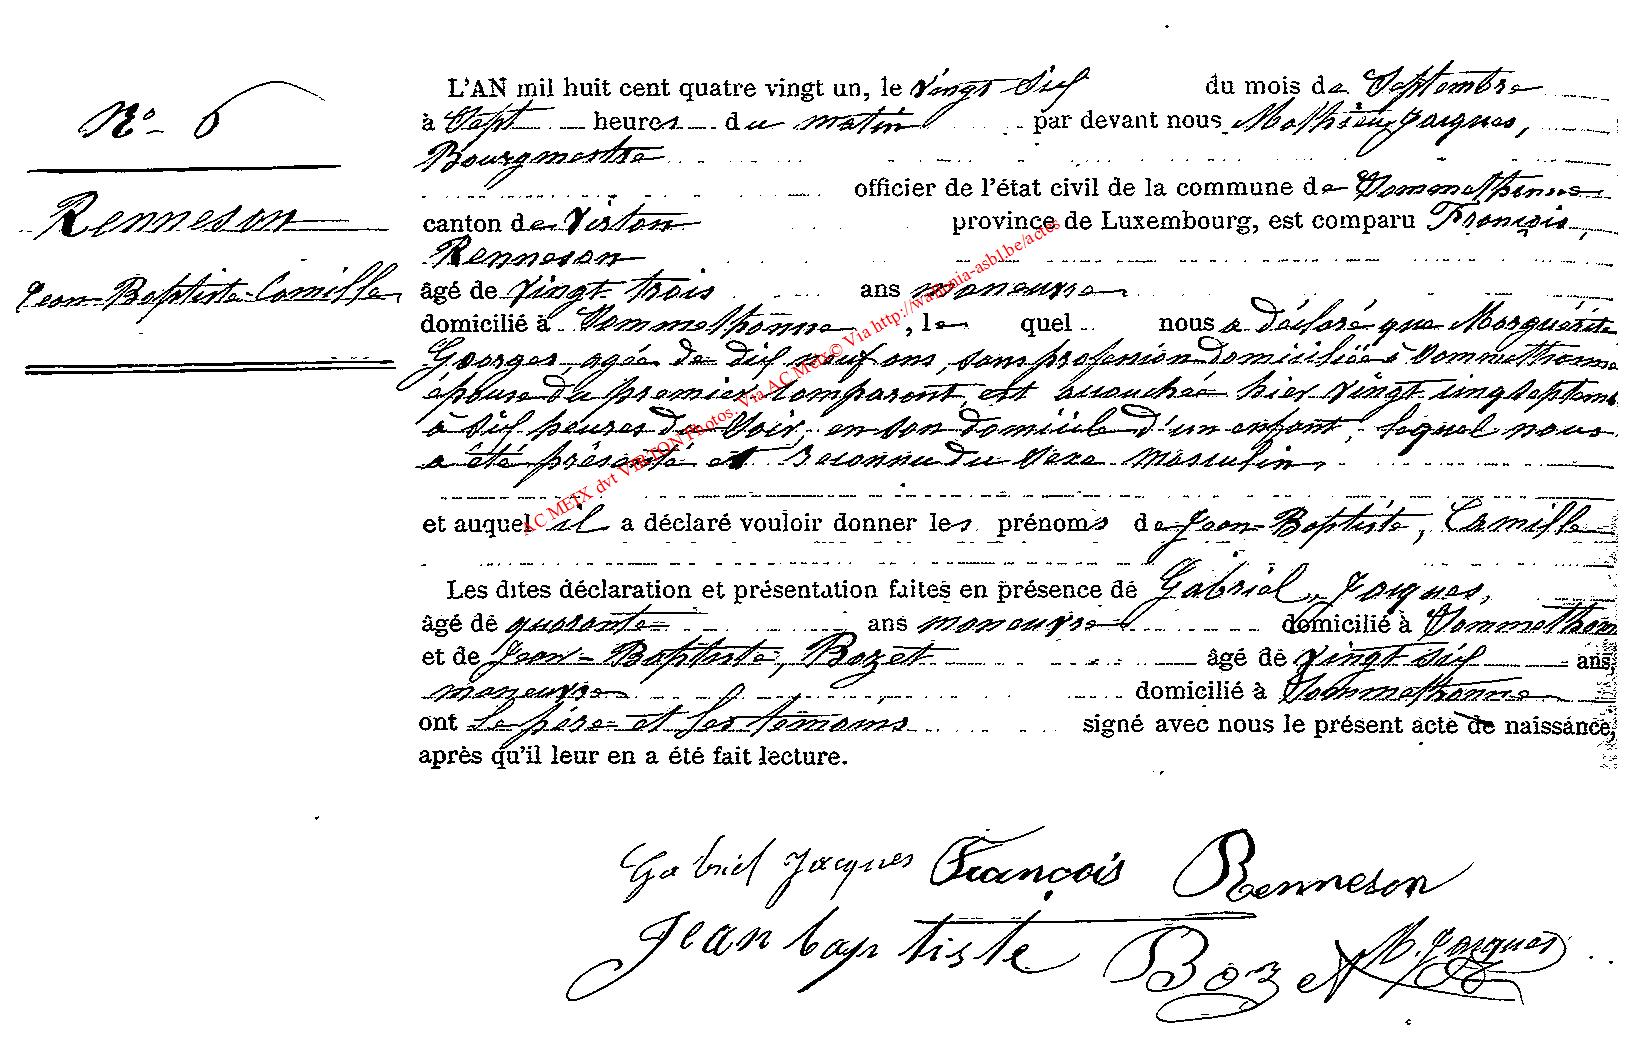 N° 6
Renneson
Jean-Baptiste-Camille
L'AN mil huit cent quatre vingt un, le vingt six du mois de Septembre
à Sept heures du matin par devant nous Mathieu Jacques,
Bourgmestre
officier de l'état civil de la commune de Sommethonne
canton de Virton province de Luxembourg, est comparu François,
Renneson
âgé de vingt trois ans maneuvre
domicilié à Sommethonne, le quel nous a déclaré que Marguérite
Georges, agée de dix neuf ans, sans profession domiciliée à Sommethonne
épouse du premier comparant, est accouchée hier vingt cinq Septemb
à six heures du Soir, en son domicile d'un enfant, lequel nous
a été présenté et reconnu du Sexe masculin,
et auquel il a déclaré vouloir donner les prénoms de Jean-Baptiste, Camille
Les dites déclaration et présentation faites en présence de Gabriel, Jacques,
âgé de quarante ans maneuvre domicilié à Sommethonn
et de Jean-Baptiste, Bozet âgé de vingt six ans,
maneuvre domicilié à Sommethonne
ont Le père et Les témoins signé avec nous le présent acte de naissance,
après qu'il leur en a été fait lecture.
Gabriel Jacques François Renneson
Jean baptiste Bozet M. Jacques
AC METX dvt VIRTON Photos. Via AC Metx© Via http://wallonia-asbl.be/actes